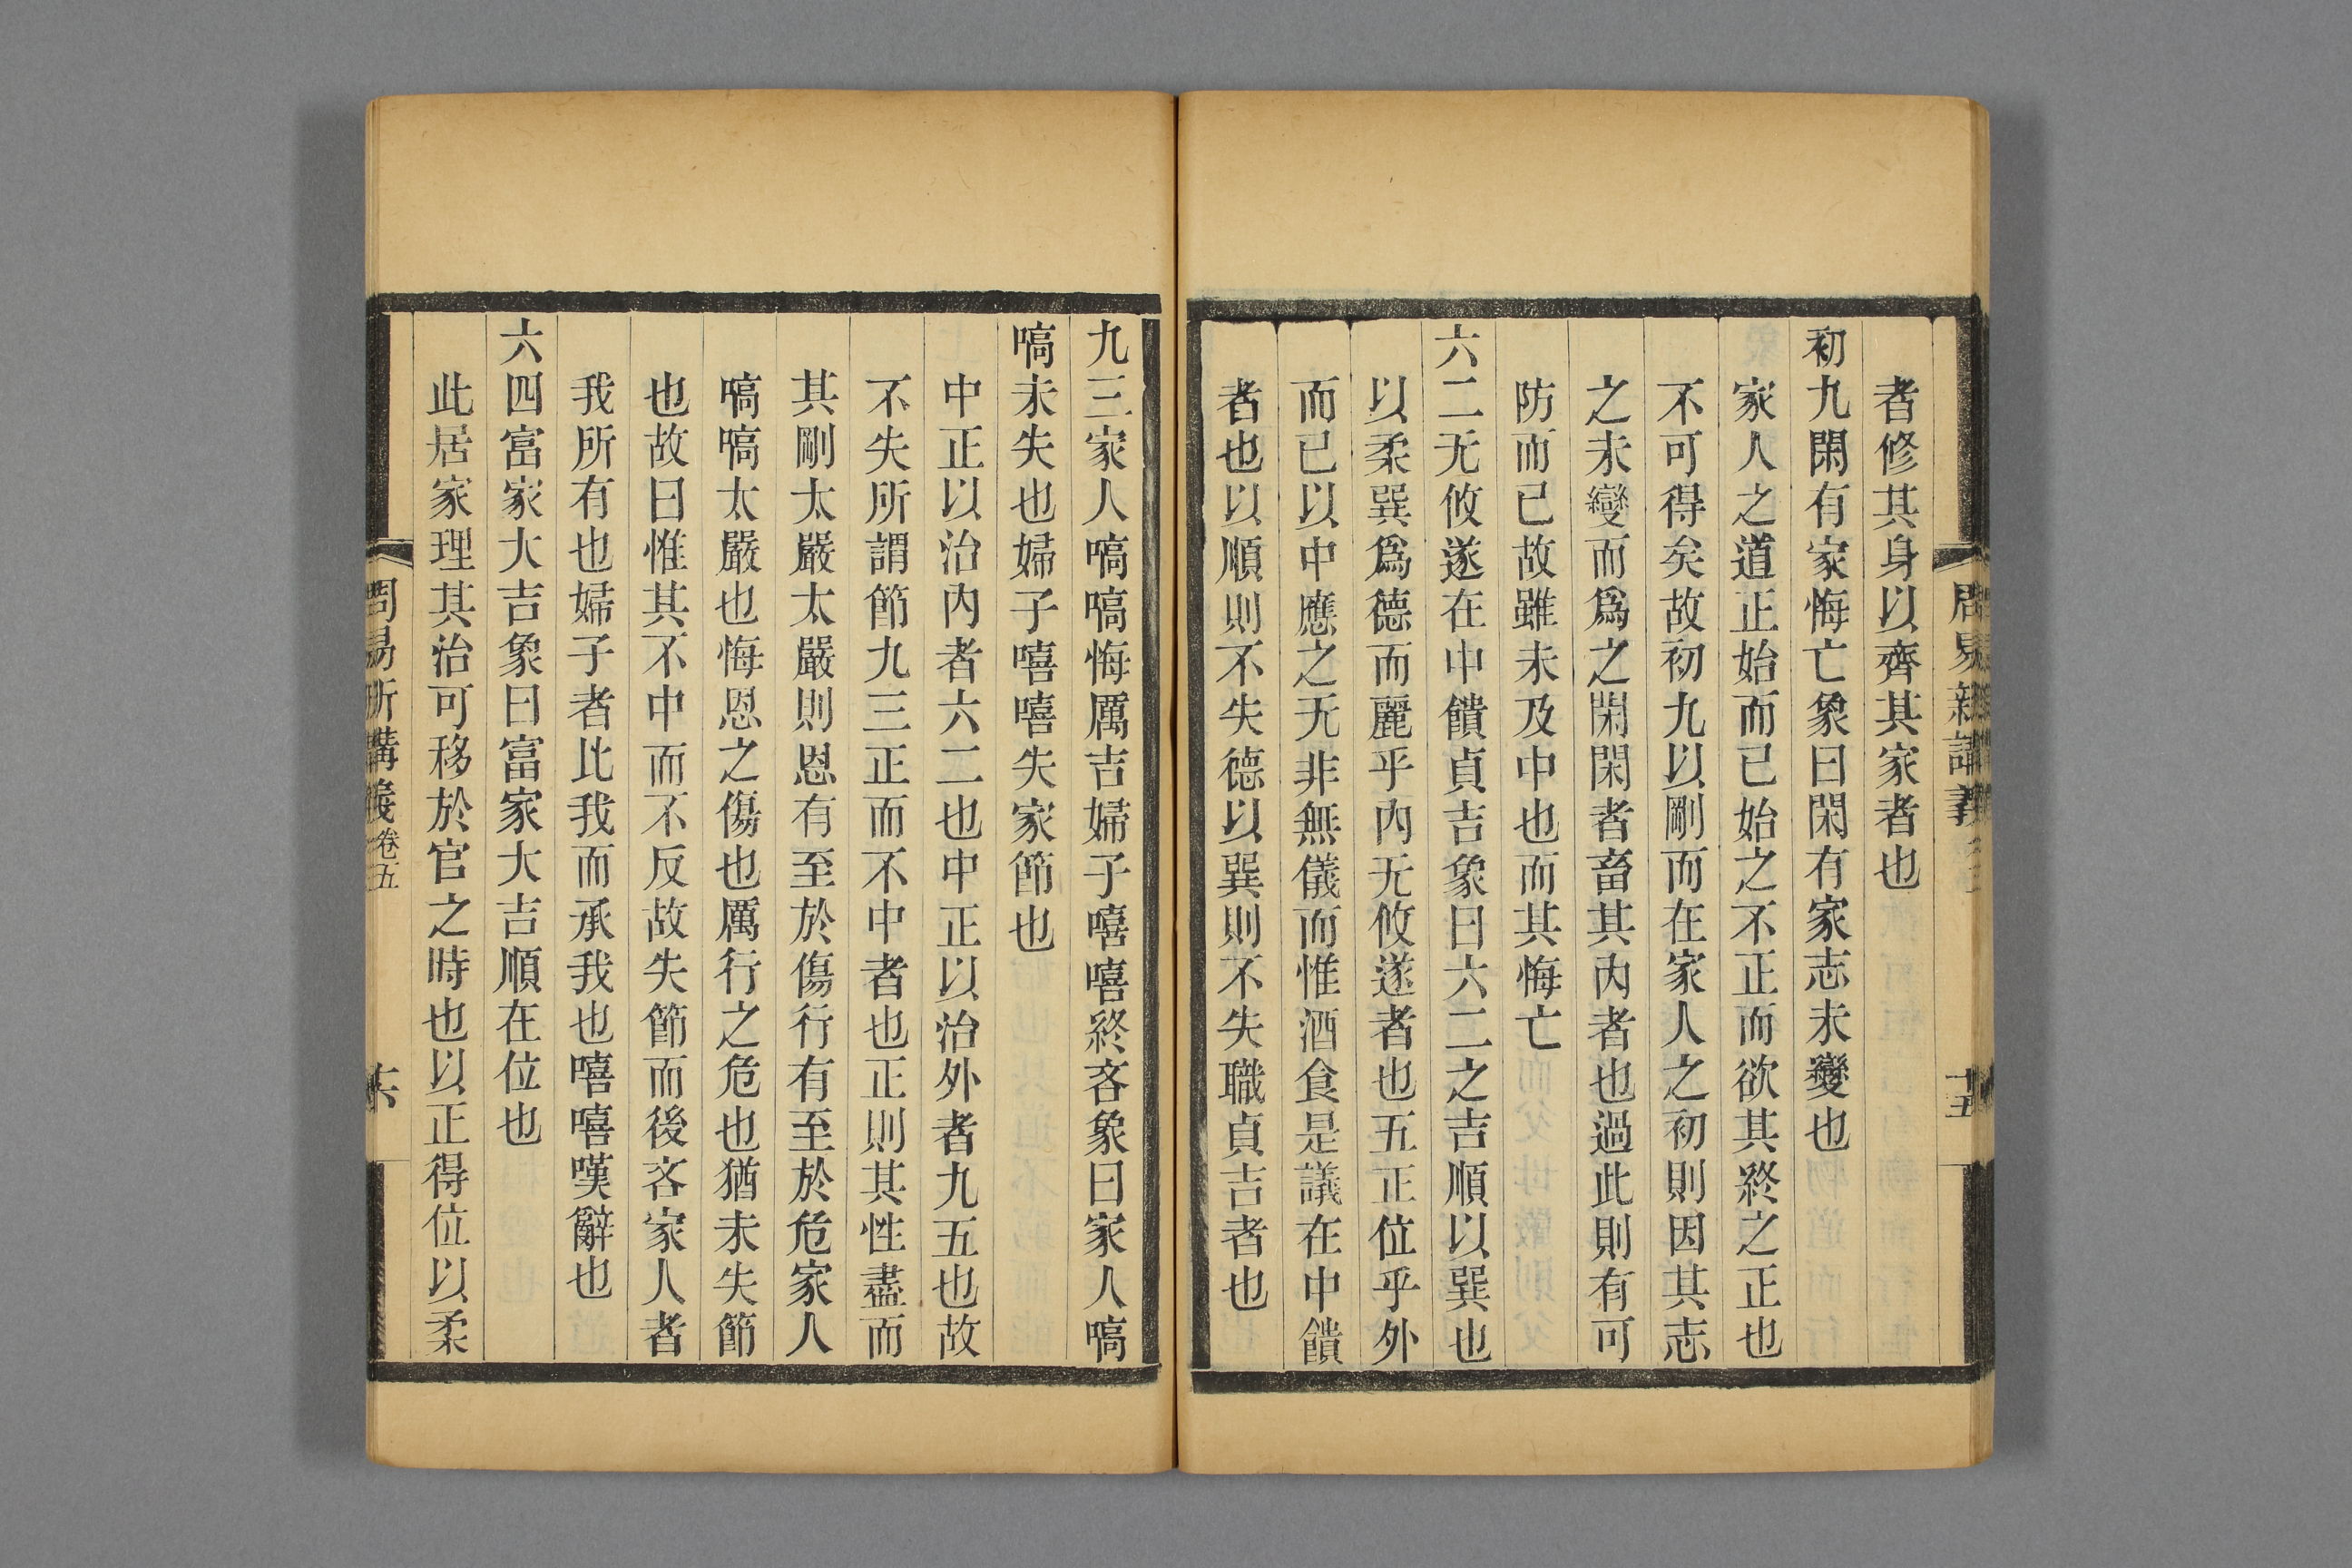 周易新講義
十五
者修其身以齊其家者也
初九閑有家悔亡象曰閑有家志未變也
家人之道正始而已始之不正而欲其終之正也
不可得矣故初九以剛而在家人之初則因其志
之未變而爲之閑閑者畜其內者也過此則有可
防而已故雖未及中也而其悔亡
六二无攸遂在中饋貞吉象曰六二之吉順以巽也
以柔巽爲德而麗乎內无攸遂者也五正位乎外
而已以中應之无非無儀而惟酒食是議在中饋
者也以順則不失德以巽則不失職貞吉者也
九三家人嗃嗃悔厲吉婦子嘻嘻終吝象曰家人嗃
嗃未失也婦子嘻嘻失家節也
中正以治內者六二也中正以治外者九五也故
不失所謂節九三正而不中者也正則其性盡而
其剛太嚴太嚴則恩有至於傷行有至於危家人
嗃嗃太嚴也悔恩之傷也厲行之危也猶未失節
也故曰惟其不中而不反故失節而後吝家人者
我所有也婦子者比我而承我也嘻嘻嘆辭也
六四富家大吉象曰富家大吉順在位也
此居家理其治可移於官之時也以正得位以柔
周易新講義卷五
十六